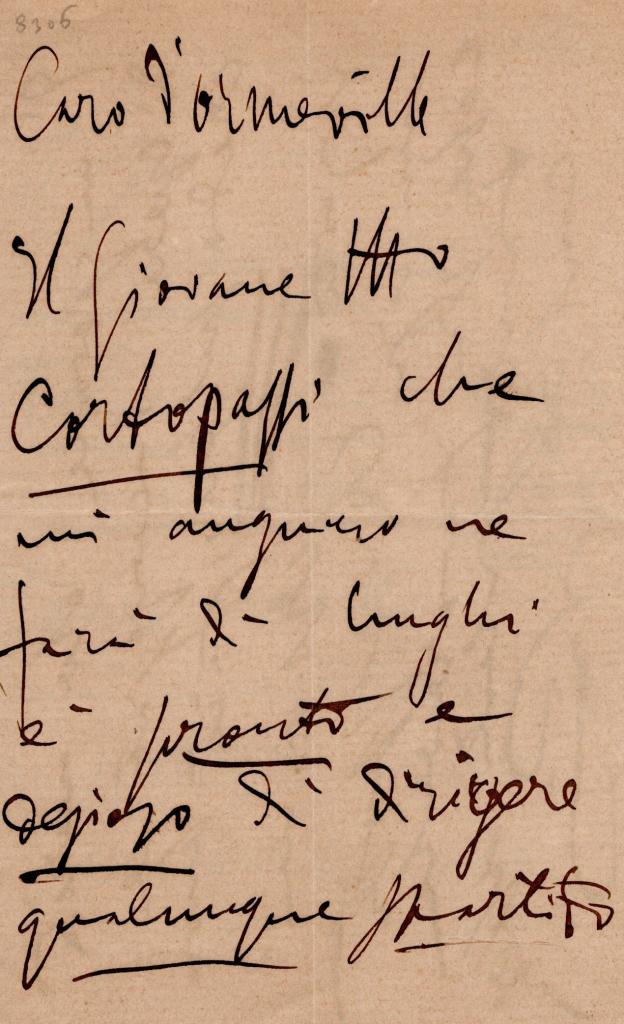 8306
Caro D'ormeville
Il giovane
Cortopassi che
mi auguro ne
farà di lunghi
è pronto e
desioso di dirigere
qualunque spartito